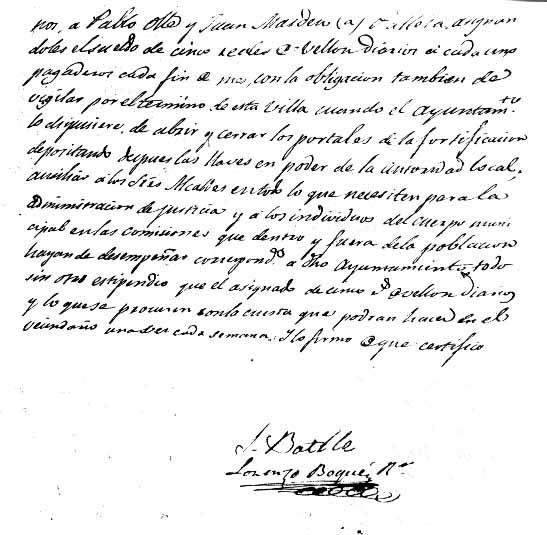 nos, a Pablo Olle y Juan Masdeu (a) asignan
doles el sueldo de cinco reales vellon diarios á cada uno
pagaderos cada fin mes, con la obligacion tambien de
vigilar por el termino de esta Villa cuando el Ayuntamto
lo dispusiere, de abrir y cerrar los portales de la fortificacion
depositando despues las llaves en poder de la autoridad local,
auxiliar á los Sres Alcaldes en todo lo que necesiten para la
administracion de justicia y á los individuos del cuerpo muni
cipal en las comisiones que dentro y fuera de la poblacion
hayan de desempeñar correspondtes a dho Ayuntamiento, todo
sin otro estipendio que el asignado de cinco rs vellon diarios
y lo que se procuren con la cuesta que podran hacer en el
vecindario una vez cada semana. Y lo firmo que certifico
J. Batlle
Lorenzo Boqué Rio